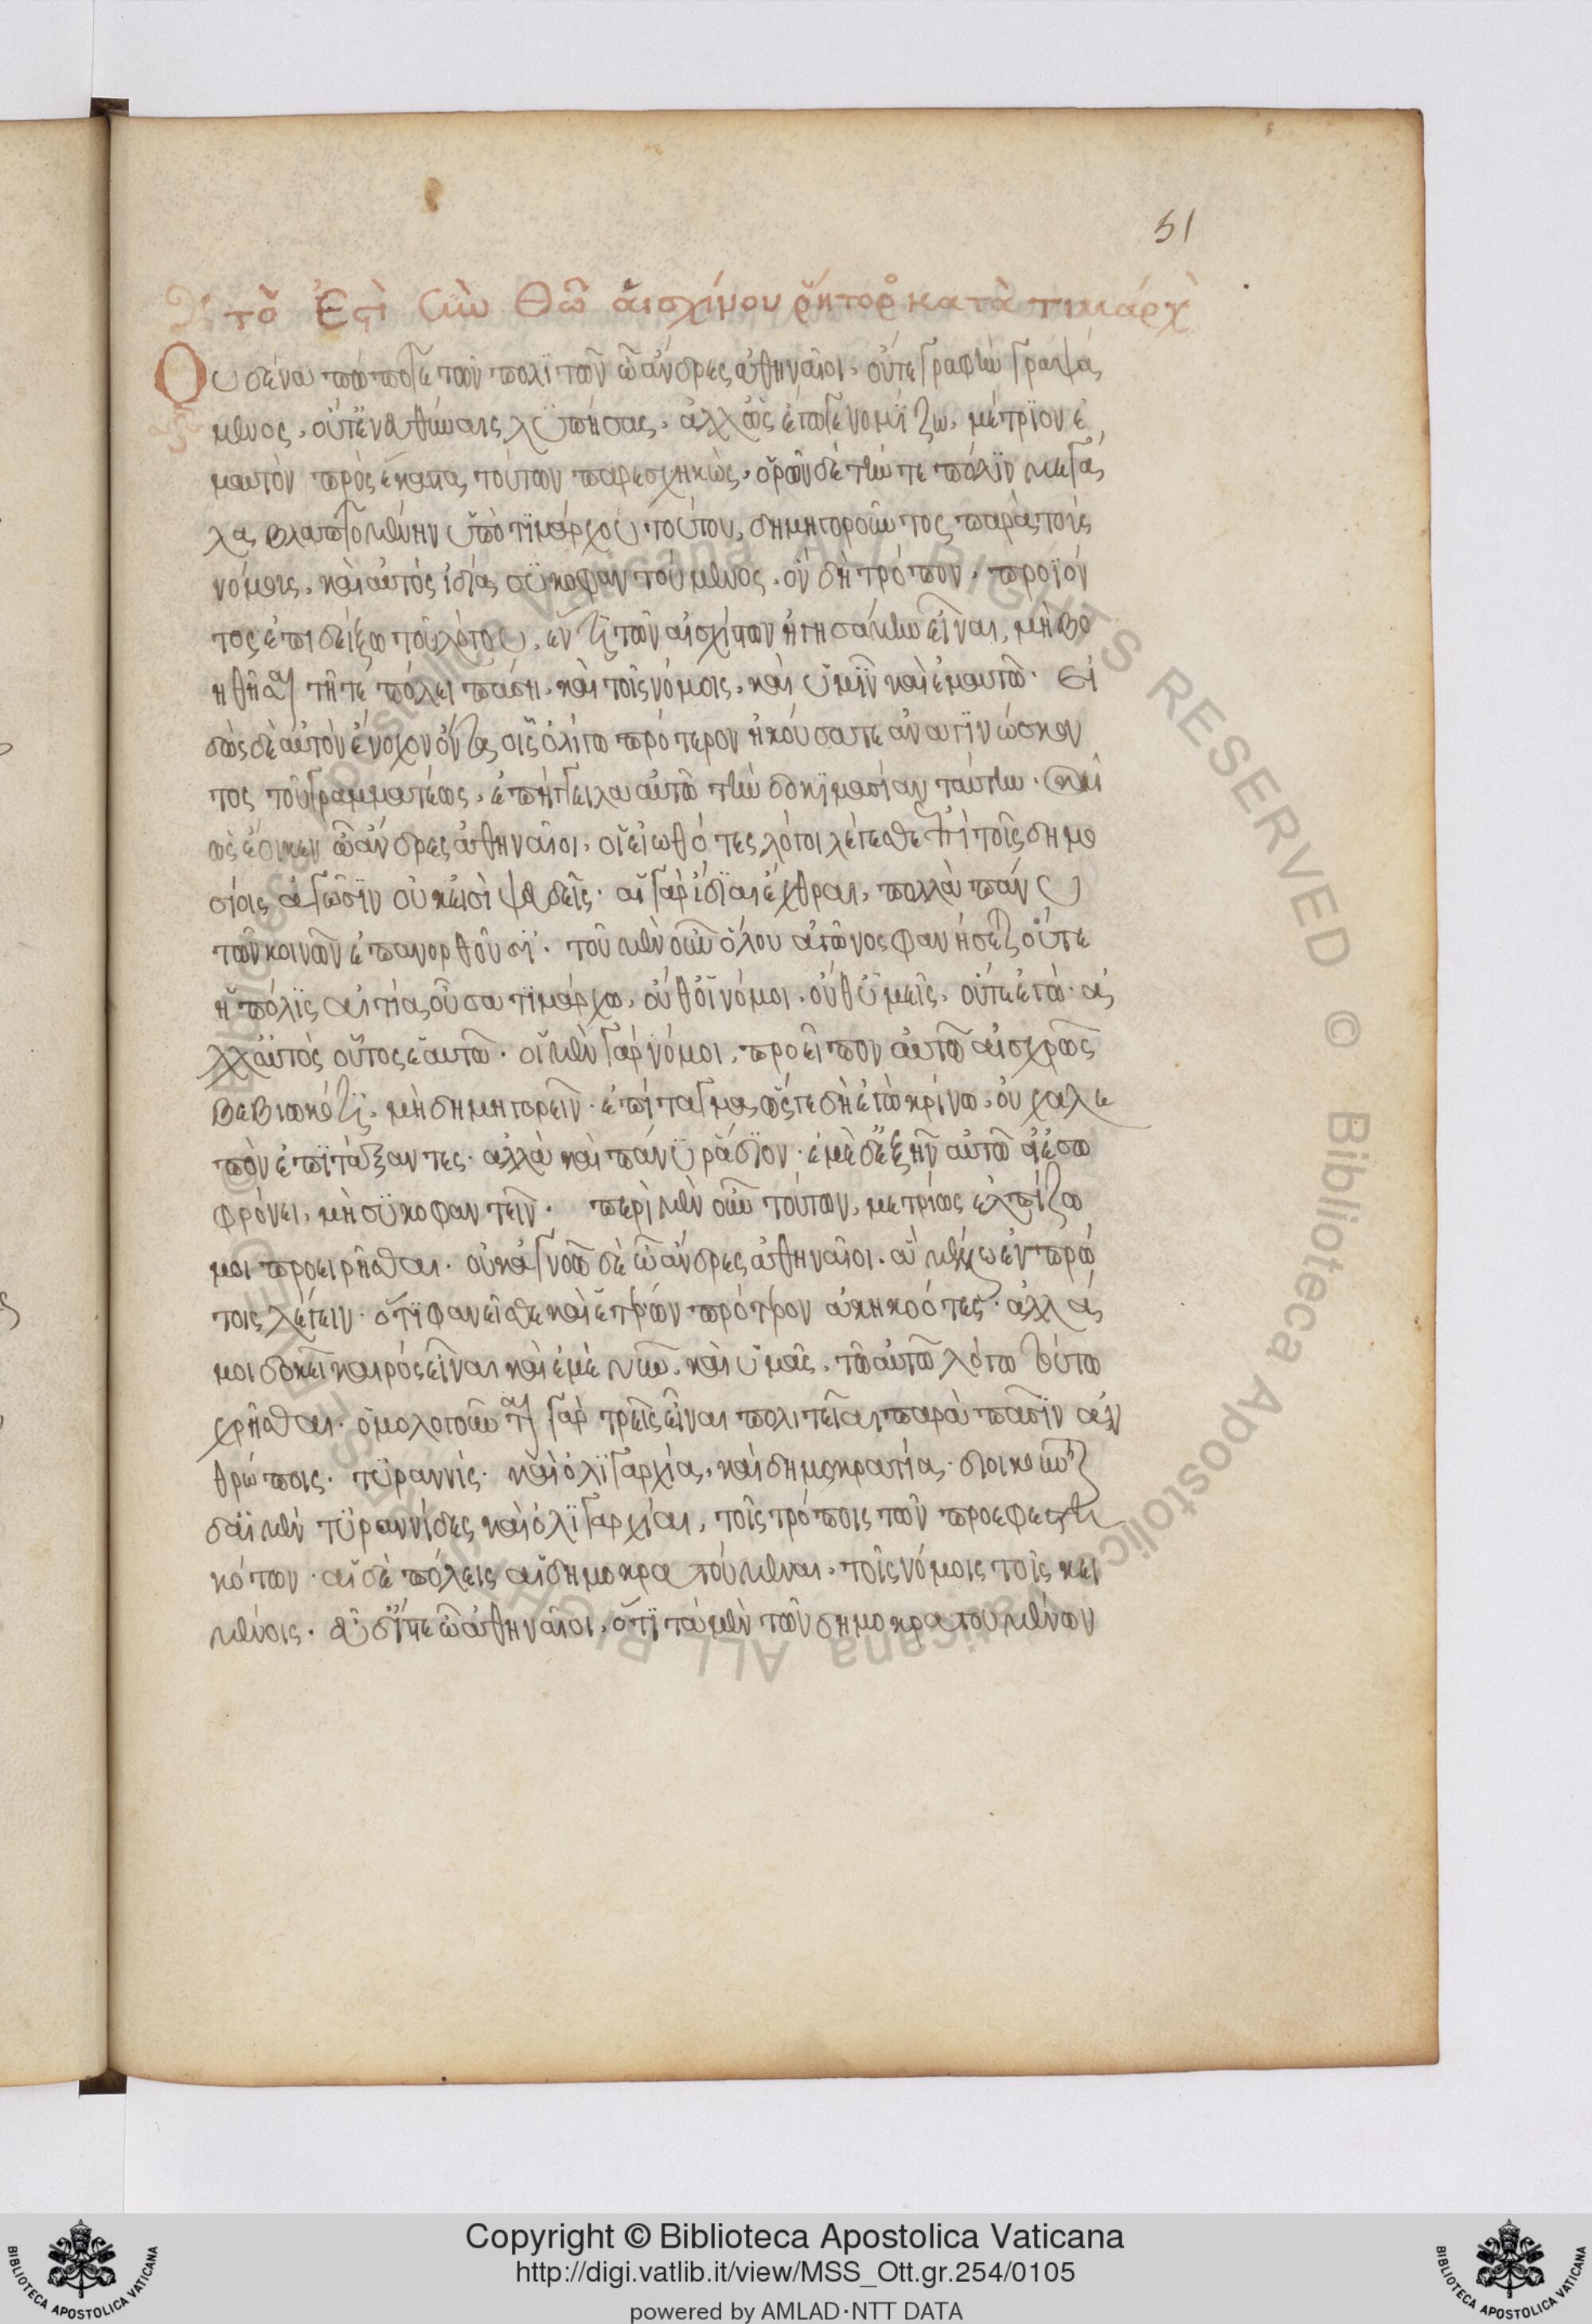 51
τὸ Ἐστὶ Σὺν Θῶ ἀισχίνου ῥήτορο κατὰ τιμάρχ
Οὐδένα πώποτε τῶν πολϊτῶν ὦ ἄνδρες ἀθηναῖοι, οὔτε γραφὴν γραψά
μενος, οὔτ' ἐν εὐθύναις λϋπήσας, ἀλλ' ὡς ἔγωγε νομΐζω, μέτρϊον ἐ
μαυτὸν πρὸς ἕκαστα τούτων παρεσχηκὼς, ὁρῶν δὲ τήν τε πόλϊν μεγά
λα βλαπτομένην ὑπὸ τϊμάρχου τούτου, δημηγοροῦντος παρὰ τοὺς
νόμους, καὶ αὐτὸς ἰδίᾳ συκοφαντούμενος, ὃν δὴ τρόπον, προϊόν
τος ἐπιδείξω τοῦ λόγου, ἕν τι τῶν αἰσχίστων ἡγησάμην εἶναι, μὴ βο
ηθῆσαι τῆ τε πόλει πάση, καὶ τοῖς νόμοις, καὶ ὑμῖν καὶ ἐμαυτῶ. Εἰ
δὼς δὲ αὐτὸν ἔνοχον ὄντα οἷς ὀλίγω πρότερον ἠκούσατε ἀναγϊνώσκον
τος τοῦ γραμματέως, ἐπήγγειλα αὐτῶ τὴν δοκϊμασίαν ταύτην. Καὶ
ὡς ἔοικεν ὦ ἄνδρες ἀθηναῖοι, οἱ εἰωθότες λόγοι λέγεσθαι ἐπὶ τοῖς δημο
σίοις ἀγῶσϊν οὐκ εἰσὶ ψευδεῖς. αἱ γὰρ ἰδΐαι ἔχθραι, πολλὰ πάνυ
τῶν κοινῶν ἐπανορθοῦσϊ. τοῦ μὲν οὖν ὅλου ἀγῶνος φανήσεται οὔτε
ἡ πόλϊς αἰτία οὖσα τϊμάρχω, οὔθ' οἱ νόμοι, οὔθ' ὑμεῖς, οὔτε ἐγὼ. ἀ
λλ' αὐτὸς οὗτος ἑαυτῶ. οἱ μὲν γὰρ νόμοι, προεῖπον αὐτῶ αἰσχρῶς
βεβιωκότϊ, μὴ δημηγορεῖν. ἐπίταγμα, ὥς γε δὴ ἐγὼ κρίνω, οὐ χαλε
πὸν ἐπϊτάξαντες. ἀλλὰ καὶ πάνϋ ῥάδϊον. ἐμὲ δ' ἐξῆν αὐτῶ εἰ ἐσω
φρόνει, μὴ συκοφαντεῖν. περὶ μὲν οὖν τούτων, μετρίως ἐλπίζω
μοι προειρῆσθαι. οὐκ ἀγνοῶ δὲ ὦ ἄνδρες ἀθηναῖοι. ἃ μέλλω ἐν πρώ
τοις λέγειν. ὅτϊ φανεῖσθε καὶ ἑτέρων πρότερον ἀκηκοότες. ἀλλά
μοι δοκεῖ καιρὸς εἶναι καὶ ἐμὲ νῦν, καὶ ὑμᾶς, τῶ αὐτῶ λόγω τούτω
χρῆσθαι. ὁμολογοῦνται γὰρ τρεῖς εἶναι πολιτεῖαι παρὰ πᾶσϊν ἀν
θρώποις. τϋραννὶς. καὶ ὀλϊγαρχία, καὶ δημοκρατία. διοικοῦνται
δ' αἱ μὲν τϋραννίδες καὶ ὀλϊγαρχίαι, τοῖς τρόποις τῶν προεφεστη
κότων. αἱ δὲ πόλεις αἱ δημοκρατούμεναι, τοῖς νόμοις τοῖς κει
μένοις. εὖ δ' ἴστε ὦ ἀθηναῖοι, ὅτϊ τὰ μὲν τῶν δημοκρατουμένων
© Biblioteca Apostolica Vaticana ALL RIGHTS RESERVED © Biblioteca Apostolica Vaticana ALL RIGHTS RESERVED
Copyright © Biblioteca Apostolica Vaticana
http://digi.vatlib.it/view/MSS_Ott.gr.254/0105
powered by AMLAD·NTT DATA
BIBLIOTECA APOSTOLICA VATICANA
BIBLIOTECA APOSTOLICA VATICANA